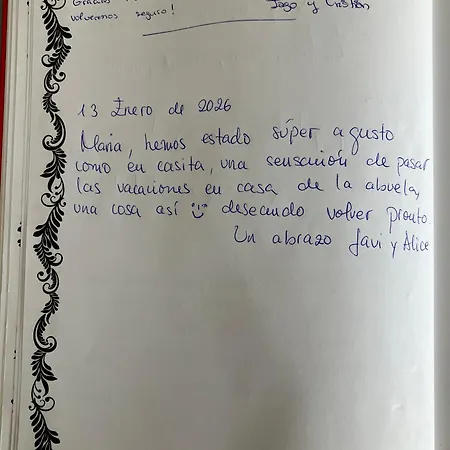 Gracias
Iago y Cristian
volveremos seguro!
13 Enero de 2026
Maria, hemos estado súper agusto
como en casita, una sensación de pasar
las vacaciones en casa de la abuela,
una cosa así deseando volver pronto.
Un abrazo Javi y Alice